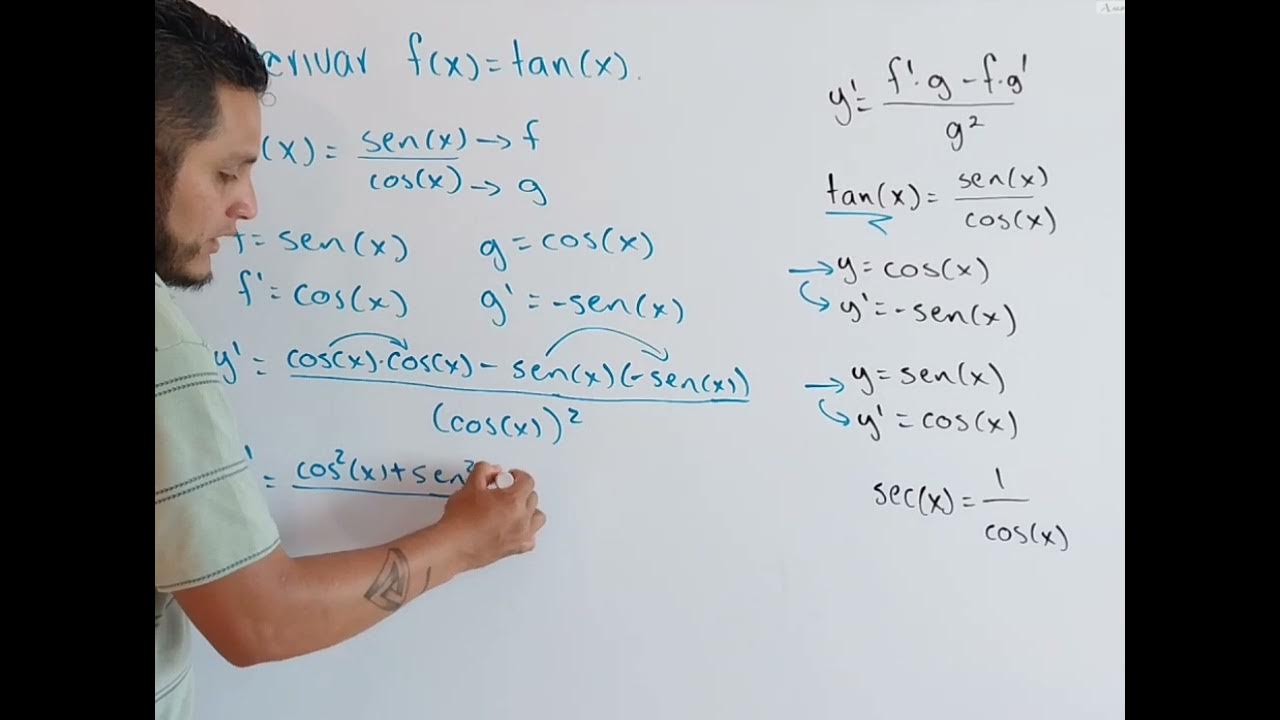 erivar f(x)=tan(x).
(x)= sen(x) → f
cos(x) → g
f=sen(x) g=cos(x)
f'=cos(x) g'=-sen(x)
y'= cos(x)·cos(x)- sen(x)(-sen(x))
(cos(x))²
'= cos²(x)+sen²
y'= f'·g-f·g'
g²
tan(x)= sen(x)
cos(x)
→y=cos(x)
y'=-sen(x)
→y=sen(x)
y'=cos(x)
sec(x)= 1
cos(x)